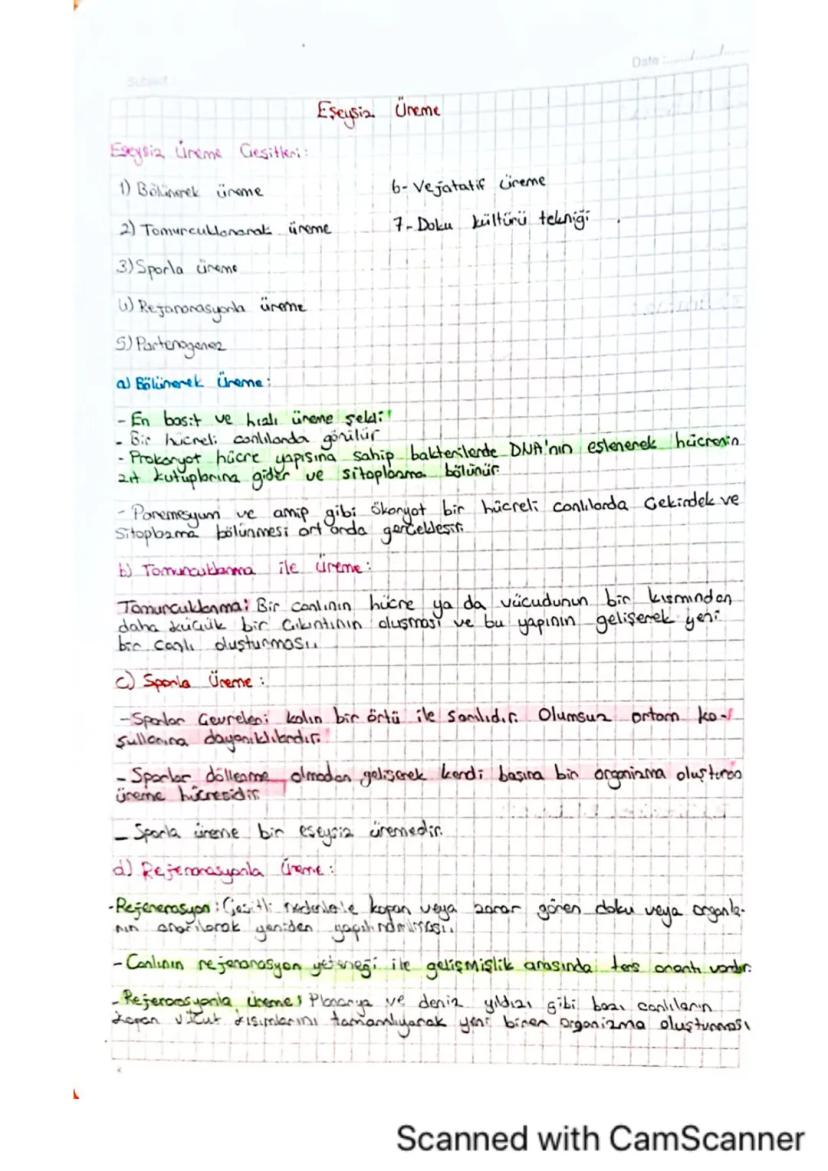 Date:
Subject:
Eşeysiz Üreme
Eşeysiz Üreme Çeşitleri:
1) Bölünerek üreme
6- Vejatatif üreme
2) Tomurcuklanarak üreme
7- Doku kültürü tekniği
3) Sporla üreme
4) Rejanarasyonla üreme
5) Partenogenez
a) Bölünerek Üreme:
- En basit ve hızlı üreme şekli
- Bir hücreli canlılarda görülür
- Prokaryot hücre yapısına sahip bakterilerde DNA'nın eşlenerek hücrenin
zıt kutuplarına gider ve sitoplazma bölünür
- Paremesyum ve amip gibi ökaryot bir hücreli canlılarda çekirdek ve
Sitoplazma bölünmesi art arda gerçekleşir.
b) Tomurcuklanma ile üreme:
Tomurcuklanma: Bir canlının hücre ya da vücudunun bir kısmından
daha küçük bir çıkıntının oluşması ve bu yapının gelişerek yeni
bir canlı oluşturması.
c) Sporla Üreme:
- Sporlar çevreleri kalın bir örtü ile sarılıdır. Olumsuz ortam ko-
şullarına dayanıklılardır.
- Sporlar döllenme olmadan gelişerek kendi başına bir organizma oluşturan
üreme hücresidir
- Sporla üreme bir eşeysiz üremedir.
d) Rejenarasyonla Üreme:
- Rejenerasyon: Çeşitli nedenlerle kopan veya zarar gören doku veya organla-
rın onarılarak yeniden yapılandırılması.
- Canlının rejenarasyon yeteneği ile gelişmişlik arasında ters orantı vardır.
- Rejenerasyonla üreme: Planarya ve deniz yıldızı gibi bazı canlıların
kopan vücut kısımlarını tamamlıyarak yeni birer organizma oluşturması
Scanned with CamScanner